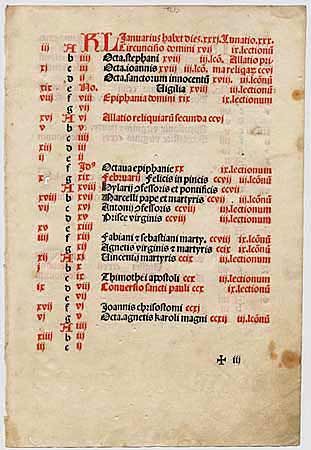 KL Januarius habet dies. xxxj. Lunatio. xxx.
iij A Circuncisio domini xvij ix. lectionum
b iiij Octa. stephani xviij iij. leco. Allatio pri
xj c iij Octa. ioannis xviij iij. leco. ma reliqax ccvj
d ij Octa. sanctorum innocentum xviij iij. lectionum
xix e No. Uigilia xviij
viij f viij Epiphania domini xix ix. lectionum
g vij
xvi A vj Allatio reliquiarum secunda ccvj
v b v
c iiij
xiij d iij
ij e ij
f Idus Octaua epiphanie xx ix. lectionum
x g xix Februarij Felicis in pincis ccvj iij. leconum
A xviij Hylarij confessoris et pontificis ccvj
xviij b xvij Marcelli pape et martyris ccvij iij. lectionum
vij c xvj Antonij confessoris ccviij iij. lectionum
d xv Prisce virginis ccviij iij. lectionum
xv e xiiij
iiij f xiij Fabiani et sebastiani marty. ccviij ix. leconum
g xij Agnetis virginis et martyris ccix ix. leconum
xij A xj Uincentij martyris ccix ix. lectionum
j b x
c ix Thimothei apostoli ccx iij. lectionum
ix d viij Conuersio sancti pauli ccx ix. lectionum
e vij
xvij f vj Joannis chrisostomi ccxj iij. lectionum
vj g v Octa. agnetis karoli magni ccxij iij. leconum
A iiij
xiiij b iij
iij c ij
✠ iij